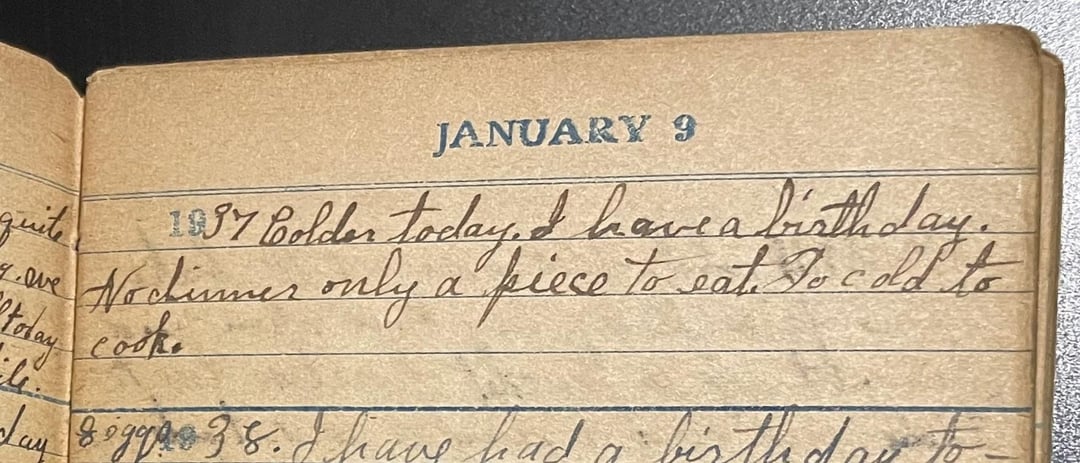 JANUARY 9
quite
1937 Colder today. I have a birthday.
ove
No dinner only a piece to eat. To cold to
today
cook.
day
8 eggs 1938. I have had a birthday to-